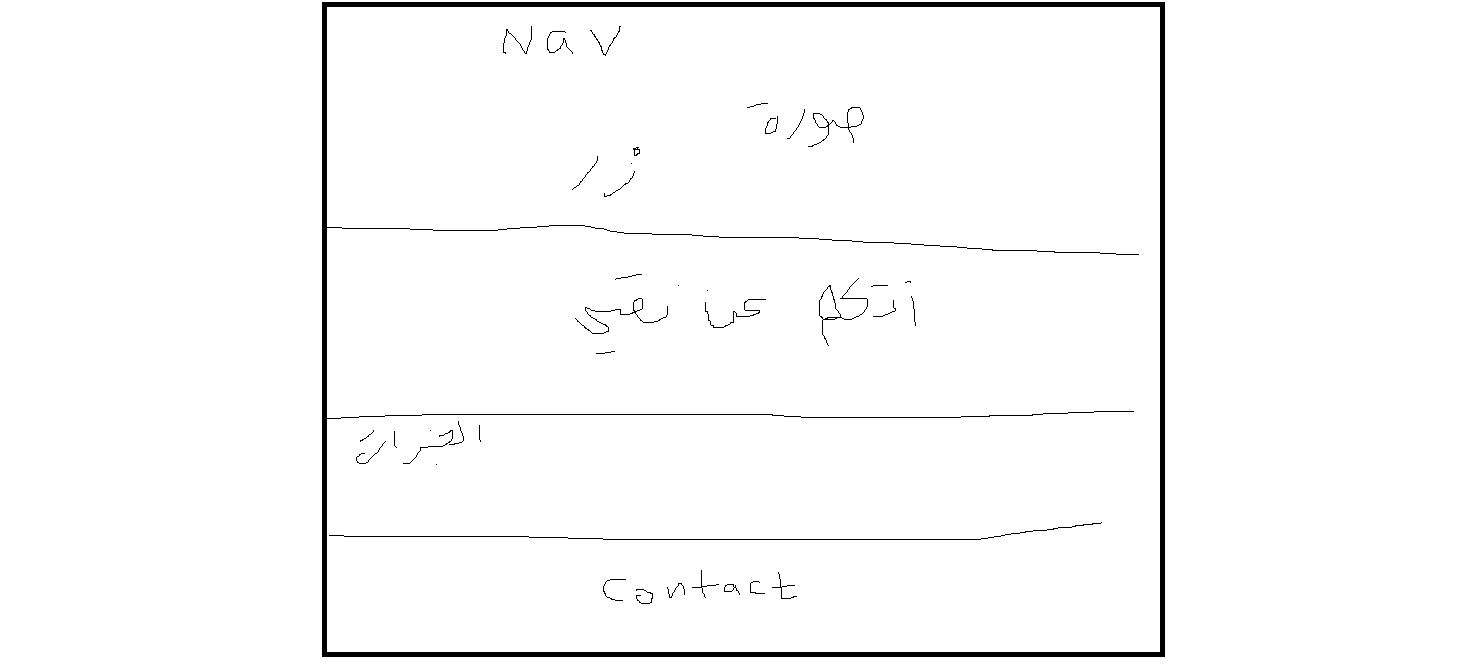 Nav
صورة
زر
أتكلم عن نفسي
الخبرات
Contact